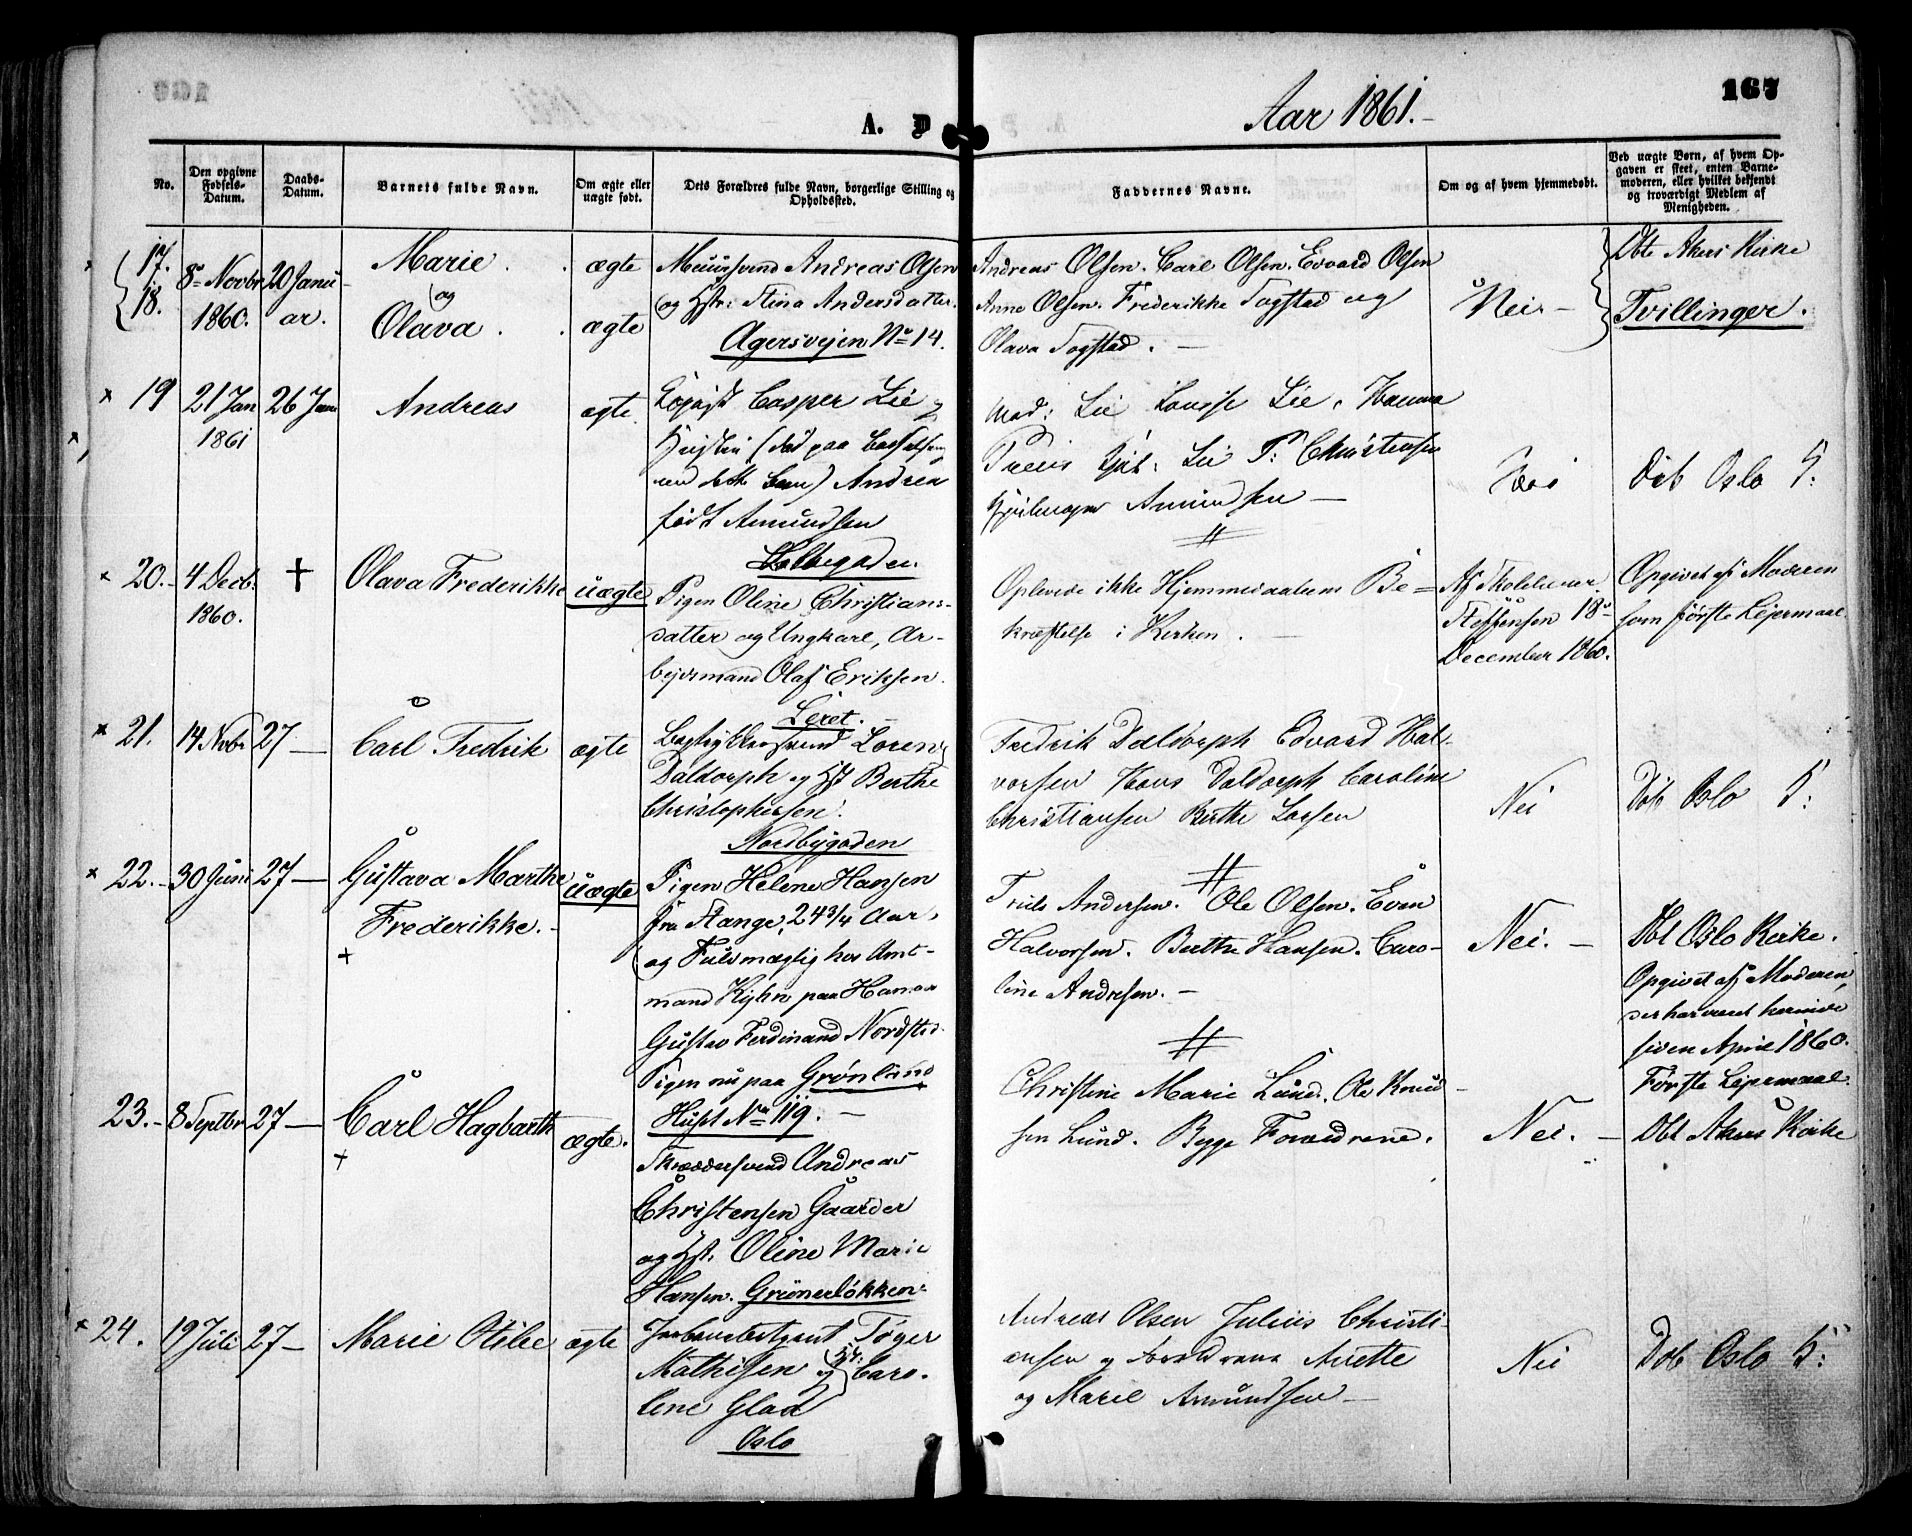 167
A. D
Aar 1861.
No.
Den opgivne Fødsels-Datum.
Daabs-Datum.
Barnets fulde Navn.
Om ægte eller uægte født.
Dets Forældres fulde Navn, borgerlige Stilling og Opholdssted.
Faddernes Navne.
Om og af hvem hjemmedøbt.
Ved uægte Børn, af hvem Opgaven er skeet, enten Barnemoderen, eller hvilket bekjendt og troværdigt Medlem af Menigheden.
17.
18.
8de Novbr
1860.
20 Janu-
ar.
Marie
og
Olava
ægte
ægte
Muursvend Andreas Olsen
og Hstr: Stina Andersdatter.
Agersvejen No 14.
Andreas Olsen. Carl Olsen. Edvard Olsen
Anne Olsen. Frederikke Fogstad og
Olava Fogstad.
Nei
Dbt Akers Kirke
Tvillinger.
19
21 Jan
1861
26 Jan
Andreas
ægte
Casper Lie
(død paa
dette Barn) Andrea
født Amundsen
Mad: Lie Lovise Lie, Hanna
Lie P: Christensen
Amundsen
Døb Oslo K:
20.
4 Decb.
1860.
†
Olava Frederikke
uægte
Pigen Oline Christians-
datter og Ungkarl, Ar-
bejdsmand Olaf Eriksen.
Leret.
Oplevede ikke Hjemmedaabens Be=
kræftelse i Kirken.
Af
Steffensen 18de
December 1860.
Opgivet af Moderen
som første Lejermaal.
21.
14 Nvbr
27
Carl Fredrik
ægte
Daldorph og Hst Berthe
Christophersen.
Nordbygaden
Fredrik Daldorph Edvard Hal-
vorsen Hans Daldorph Caroline
Christiansen Berthe Larsen
Nei
Døb Oslo K:
22.
30 Juni
27
Gustava Marthe
Frederikke.
uægte
Pigen Helene Hansen
fra Stange, 24 3/4 Aar,
og Fuldmægtig hos Amt-
mand Kyhn paa Hamar
Gustav Ferdinand Nordsted.
Pigen nu paa Grønland
Huset No 119.
Andersen. Ole Olsen. Even
Halvorsen. Berthe Hansen. Caro-
line Andresen.
Nei.
Dbt Oslo Kirke.
Opgivet af Moderen,
der har været herinde
siden April 1860.
Første Lejermaal.
23.
8 Septbr
27
Carl Hagbarth
ægte.
Skræddersvend Andreas
Christensen Gaarder
og Hst. Oline Marie
Hansen. Grünerløkken.
Christine Marie Lund. Ole Knud-
sen Lund. Begge Forældrene.
Nei.
Dbt Akers Kirke
24.
19 Juli
27
Marie Otilie
ægte
Tøger
Mathisen og Hst: Caro-
line Glad
Oslo
Andreas Olsen Julius Christi-
ansen og Forældrene Anette
og Marie Amundsen
Nei
Døb Oslo K: